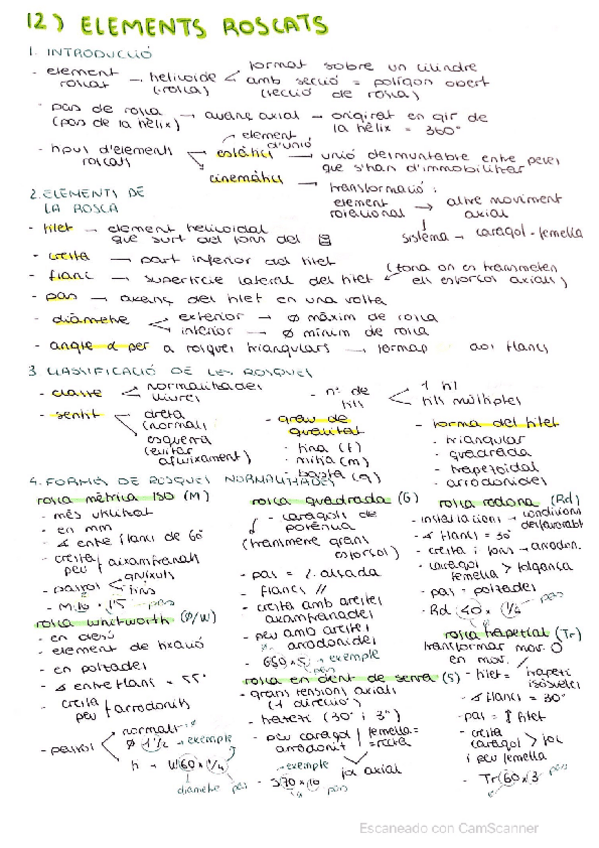 12) ELEMENTS ROSCATS
1. INTRODUCCIÓ
- element roscat → helicoide (rosca) < format sobre un cilindre
amb secció = polígon obert
(secció de rosca)
- pas de rosca (pas de la hèlix) → avanç axial → originat en gir de
la hèlix = 360°
- tipus d'elements roscats
estàtics → element d'unió → unió desmuntable entre peces
que s'han d'immobilitzar
cinemàtics → transformació:
element rotacional → altre moviment axial
sistema → caragol-femella
2. ELEMENTS DE
LA ROSCA
- filet → element helicoidal
que surt del fons del
- cresta → part inferior del filet
- flanc → superfície lateral del filet (zona on es transmeten
els esforços axials)
- pas → avanç del filet en una volta
- diàmetre < exterior → ø màxim de rosca
interior → ø mínim de rosca
- angle α per a rosques triangulars → format pels flancs
3 CLASSIFICACIÓ DE LES ROSQUES
- classe < normalitzades
lliures
- nº de fils < 1 fil
fils múltiples
- sentit < dreta
(normal)
esquerra
(evitar
afluixament)
- grau de
qualitat
- fina (f)
- mitja (m)
- basta (g)
- forma del filet
- triangular
- quadrada
- trapezoidal
- arrodonides
4. FORMES DE ROSQUES NORMALITZADES
rosca mètrica ISO (M)
- més utilitzat
- en mm
- ∢ entre flancs de 60°
- cresta/peu aixamfranats
- passos < gruixuts
fins
- M.10 × 1,5 → pas
rosca whitworth (P/W)
- en desús
- element de fixació
- en polzades
- ∢ entre flancs = 55°
- cresta
peu / arrodonits
- passos < normals:
ø 1 1/2 → exemple
fi → W60 × 1/4
diàmetre pas
rosca quadrada (G)
- caragols de
potència
(transmetre grans
esforços)
- pas = 2.alçada
- flancs //
- cresta amb arestes
axamfranades
- peu amb arestes
arrodonides
- G60×5 → exemple
pas
rosca en dent de serra (S)
- grans tensions axials
(1 direcció)
- trapezi (30° i 3°)
- peu caragol
arrodonit / femella =
= recta
joc axial
→ exemple
- S70 × 10
pas
rosca rodona (Rd)
- instal·lacions → condicions
desfavorabl
- ∢ flancs = 30°
- cresta i fons → arrodon.
- caragol
femella > folgança
- pas → polzades
- Rd 40 × 1/4 → pas
rosca trapecial (Tr)
transformar mov. ↻
en mov. /
- filet = trapezi
isòsceles
- ∢ flancs = 30°
- pas = ↑ filet
- cresta
caragol > joc
i peu femella
- Tr 60 × 3 pas
Escaneado con CamScanner